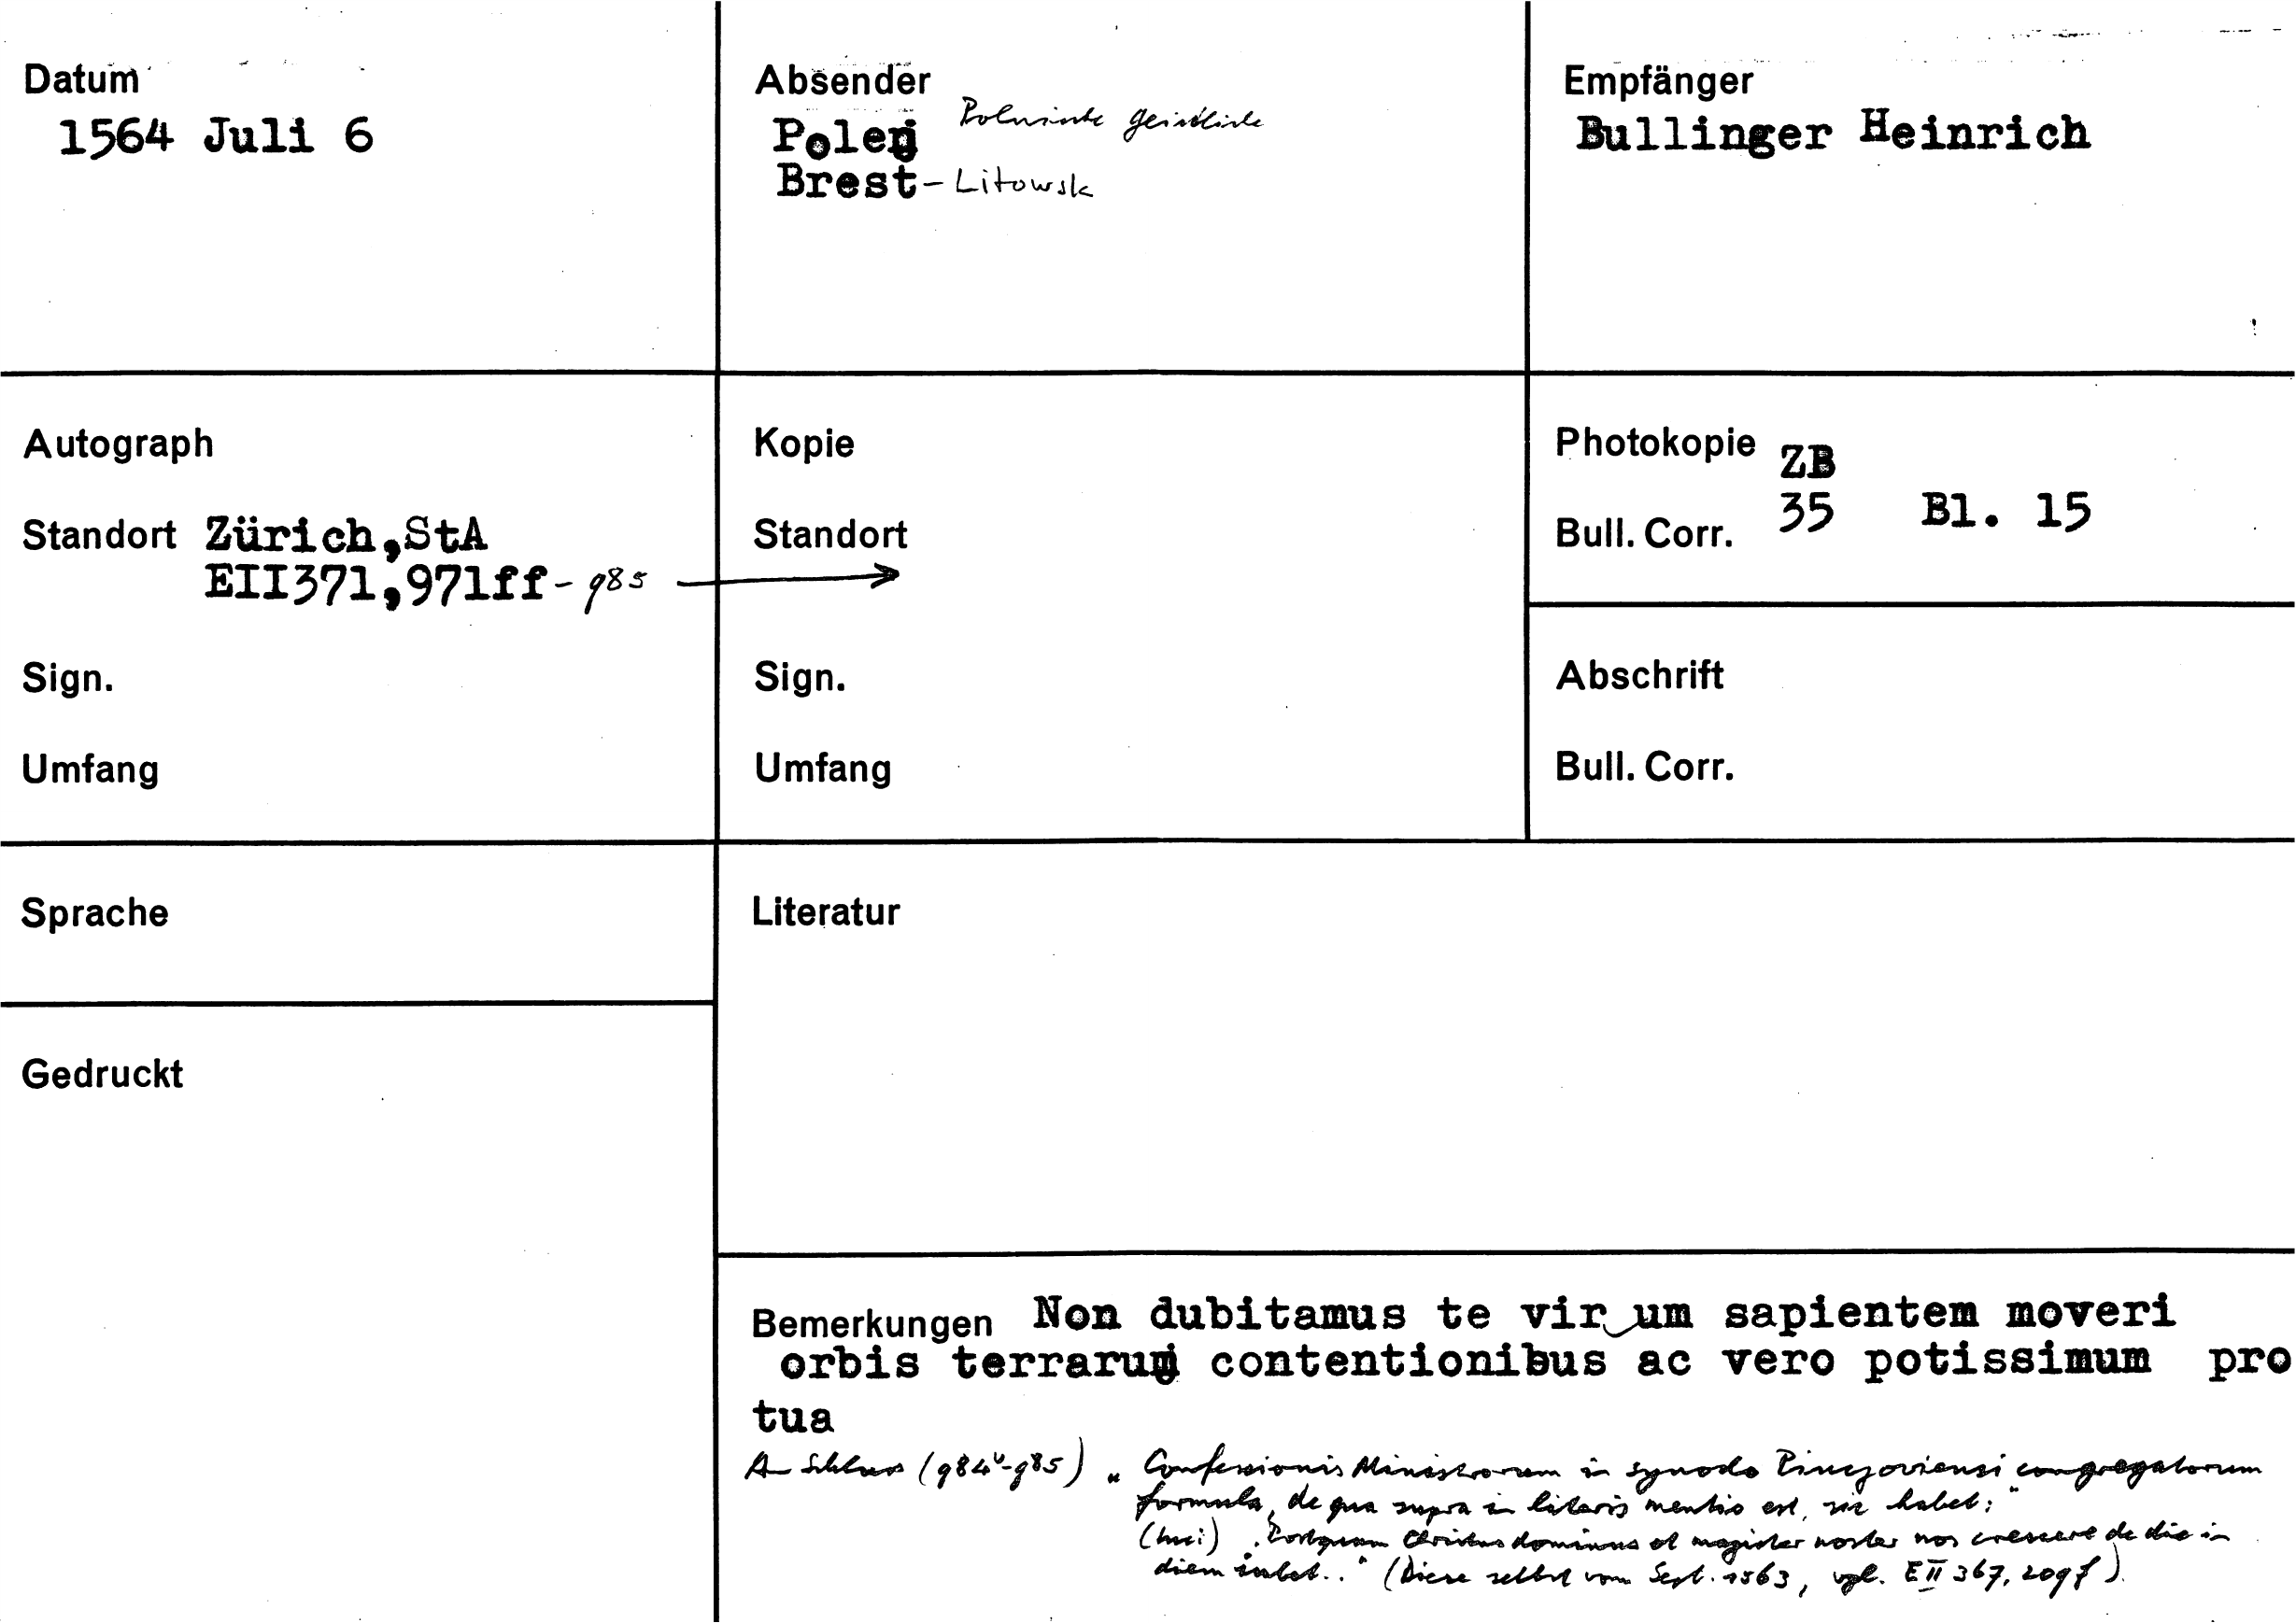 Datum
1564 Juli 6
Absender
Polen Polnische Geistliche
Brest-Litowsk
Empfänger
Bullinger Heinrich
Autograph
Standort Zürich,StA
EII371,971ff-985
Sign.
Umfang
Kopie
Standort
Sign.
Umfang
Photokopie ZB
Bull. Corr. 35 Bl. 15
Abschrift
Bull. Corr.
Sprache
Gedruckt
Literatur
Bemerkungen Non dubitamus te virum sapientem moveri
orbis terrarum contentionibus ac vero potissimum pro
tua
Am Schluss (984v-985) „Confessionis Ministrorum in synodo Pinczoviensi congregatorum
formula, de qua supra in literis mentio est, sic habet:"
(Inci) „Postquam Christus dominus et magister noster nos crescere de die in
diem iubet.." (Diese selbst vom Sept. 1563, vgl. E II 367, 209f).